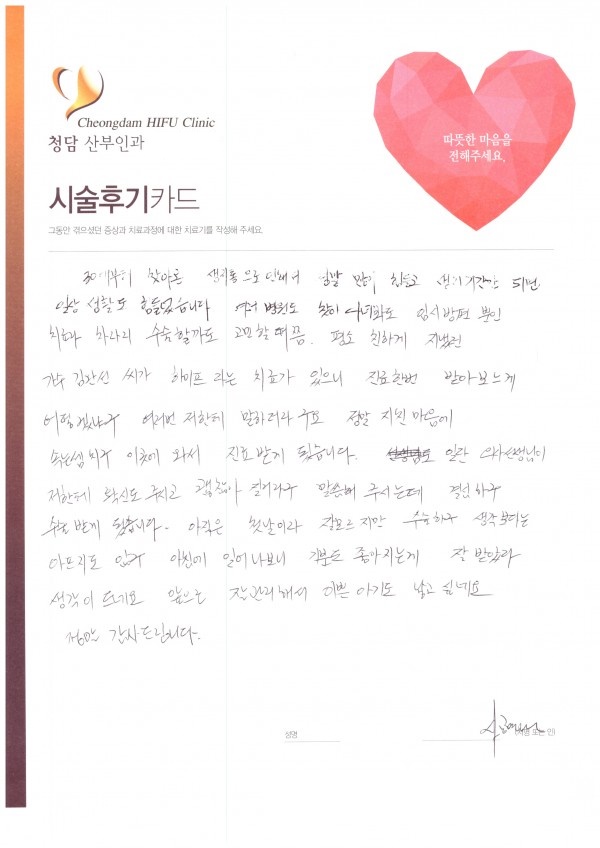 Cheongdam HIFU Clinic
청담 산부인과
따뜻한 마음을
전해주세요.
시술후기카드
그동안 겪으셨던 증상과 치료과정에 대한 치료기를 작성해 주세요.
30대부터 찾아온 생리통으로 인해서 정말 많이 힘들고 생리기간만 되면
일상 생활도 힘들었습니다 여러 병원도 많이 다녀봐도 임시방편 뿐인
치료라 차라리 수술할까도 고민할 때쯤. 평소 친하게 지냈던
가수 김간선 씨가 하이프 라는 치료가 있으니 진료한번 받아보는게
어떻겠냐구 여러번 저한테 말하더라구요 정말 지친 마음에
속는셈 치구 이곳에 와서 진료 받게 됬습니다. 일단 의사선생님이
저한테 확신도 주시고 괜찮아 질거라구 말씀해 주시는데 결심하구
수술 받게 됬습니다. 아직은 첫날이라 잘모르지만 수술하구 생각보다는
아프지도 않구 아침에 일어나보니 기분도 좋아지는게 잘 받았다
생각이 드네요 앞으로 잘관리해서 이쁜 아기도 낳고 싶네요
정말 감사드립니다.
성명
(서명 또는 인)